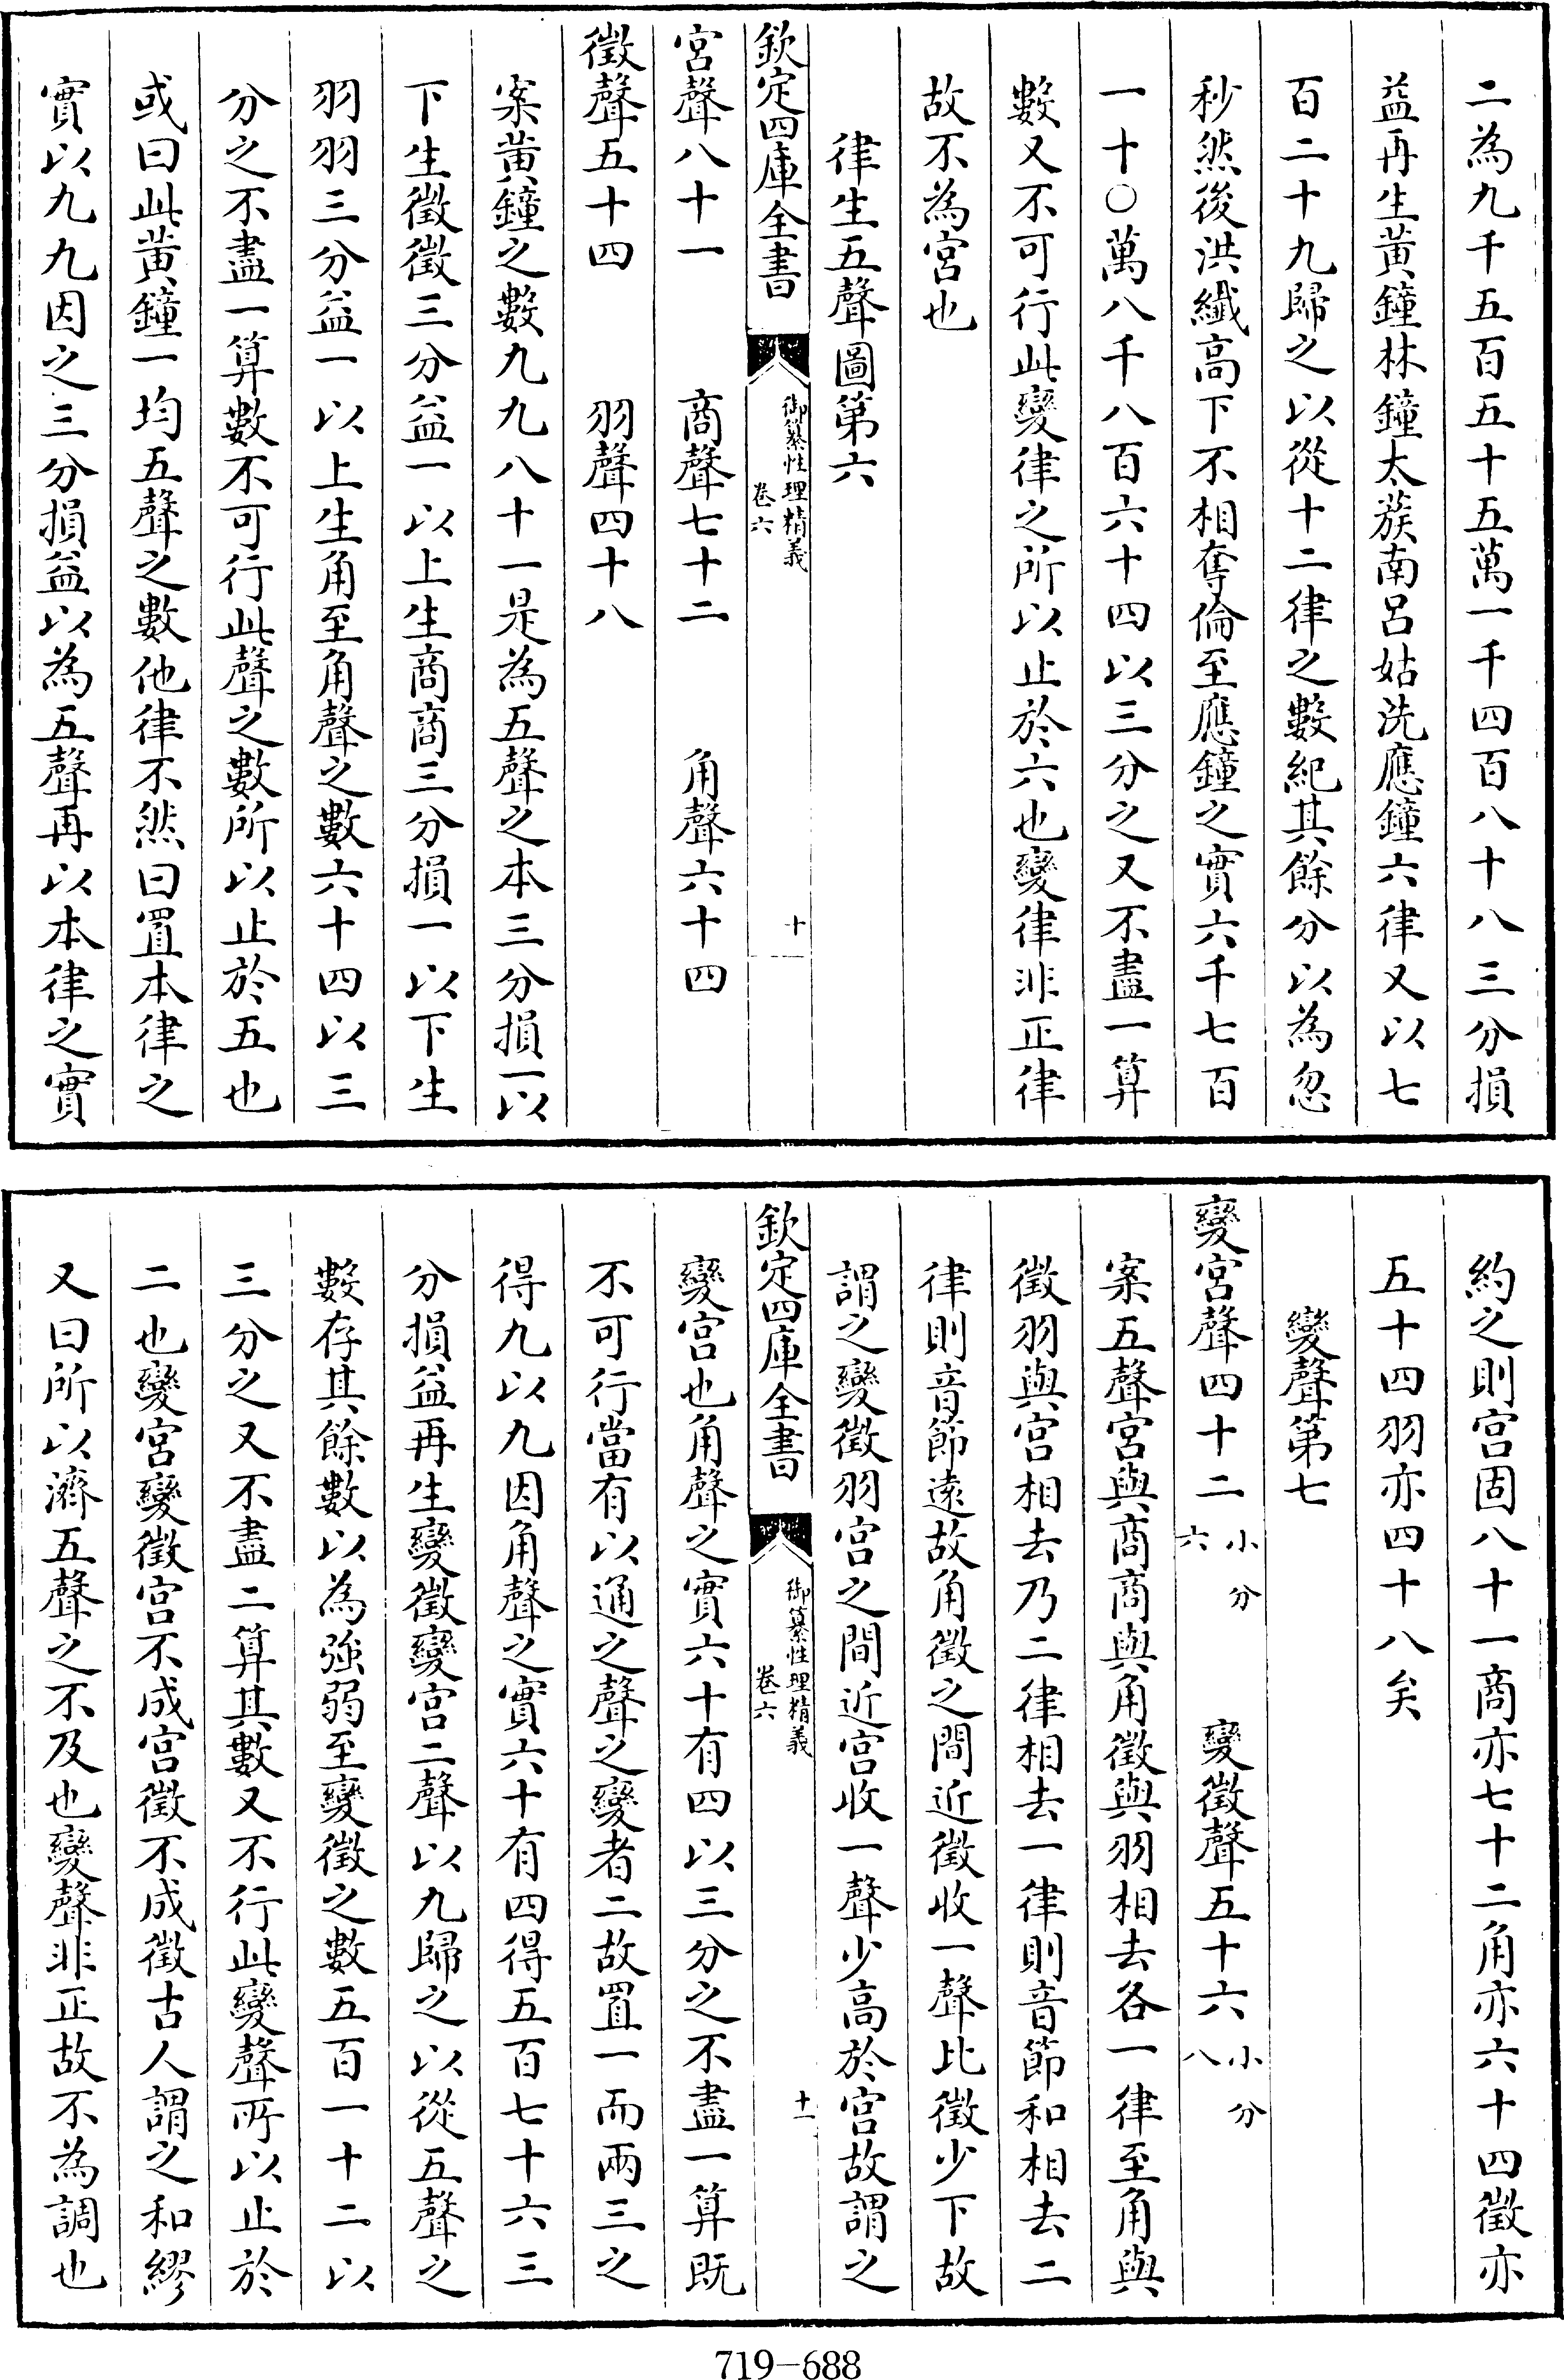 二為九千五百五十五萬一千四百八十八三分損
益再生黃鐘林鐘太蔟南呂姑洗應鐘六律又以七
百二十九歸之以從十二律之數紀其餘分以為忽
秒然後洪纖高下不相奪倫至應鐘之實六千七百
一十○萬八千八百六十四以三分之又不盡一算
數又不可行此變律之所以止於六也變律非正律
故不為宮也
律生五聲圖第六
欽定四庫全書
御纂性理精義
卷六
十
宮聲八十一 商聲七十二 角聲六十四
徵聲五十四 羽聲四十八
案黃鐘之數九九八十一是為五聲之本三分損一以
下生徵徵三分益一以上生商商三分損一以下生
羽羽三分益一以上生角至角聲之數六十四以三
分之不盡一算數不可行此聲之數所以止於五也
或曰此黃鐘一均五聲之數他律不然曰置本律之
實以九九因之三分損益以為五聲再以本律之實
約之則宮固八十一商亦七十二角亦六十四徵亦
五十四羽亦四十八矣
變聲第七
變宮聲四十二 小分六 變徵聲五十六 小分八
案五聲宮與商商與角徵與羽相去各一律至角與
徵羽與宮相去乃二律相去一律則音節和相去二
律則音節遠故角徵之間近徵收一聲比徵少下故
謂之變徵羽宮之間近宮收一聲少高於宮故謂之
欽定四庫全書
御纂性理精義
卷六
十一
變宮也角聲之實六十有四以三分之不盡一算既
不可行當有以通之聲之變者二故置一而兩三之
得九以九因角聲之實六十有四得五百七十六三
分損益再生變徵變宮二聲以九歸之以從五聲之
數存其餘數以為強弱至變徵之數五百一十二以
三分之又不盡二算其數又不行此變聲所以止於
二也變宮變徵宮不成宮徵不成徵古人謂之和繆
又曰所以濟五聲之不及也變聲非正故不為調也
719-688